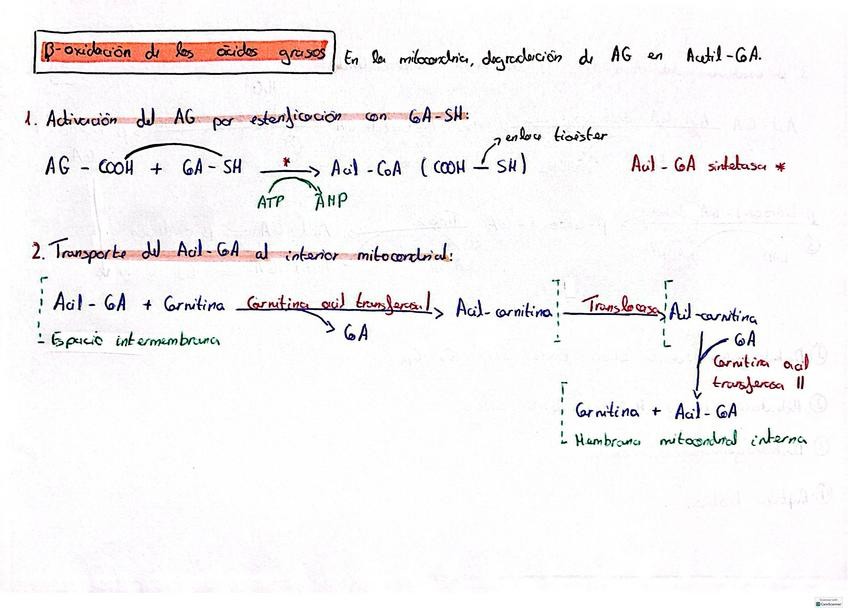 β-oxidación de los ácidos grasos En la mitocondria, degradación de AG en Acetil-CoA.
1. Activación del AG por esterificación con CoA-SH:
enlace tioéster
AG - COOH + CoA-SH * Acil-CoA (COOH - SH) Acil-CoA sintetasa *
ATP AMP
2. Transporte del Acil-CoA al interior mitocondrial:
Acil-CoA + Carnitina Carnitina acil transferasa I Acil-carnitina Translocasa Acil-carnitina
Espacio intermembrana CoA CoA
Carnitina acil
transferasa II
Carnitina + Acil-CoA
Membrana mitocondrial interna
Scanned with
CamScanner